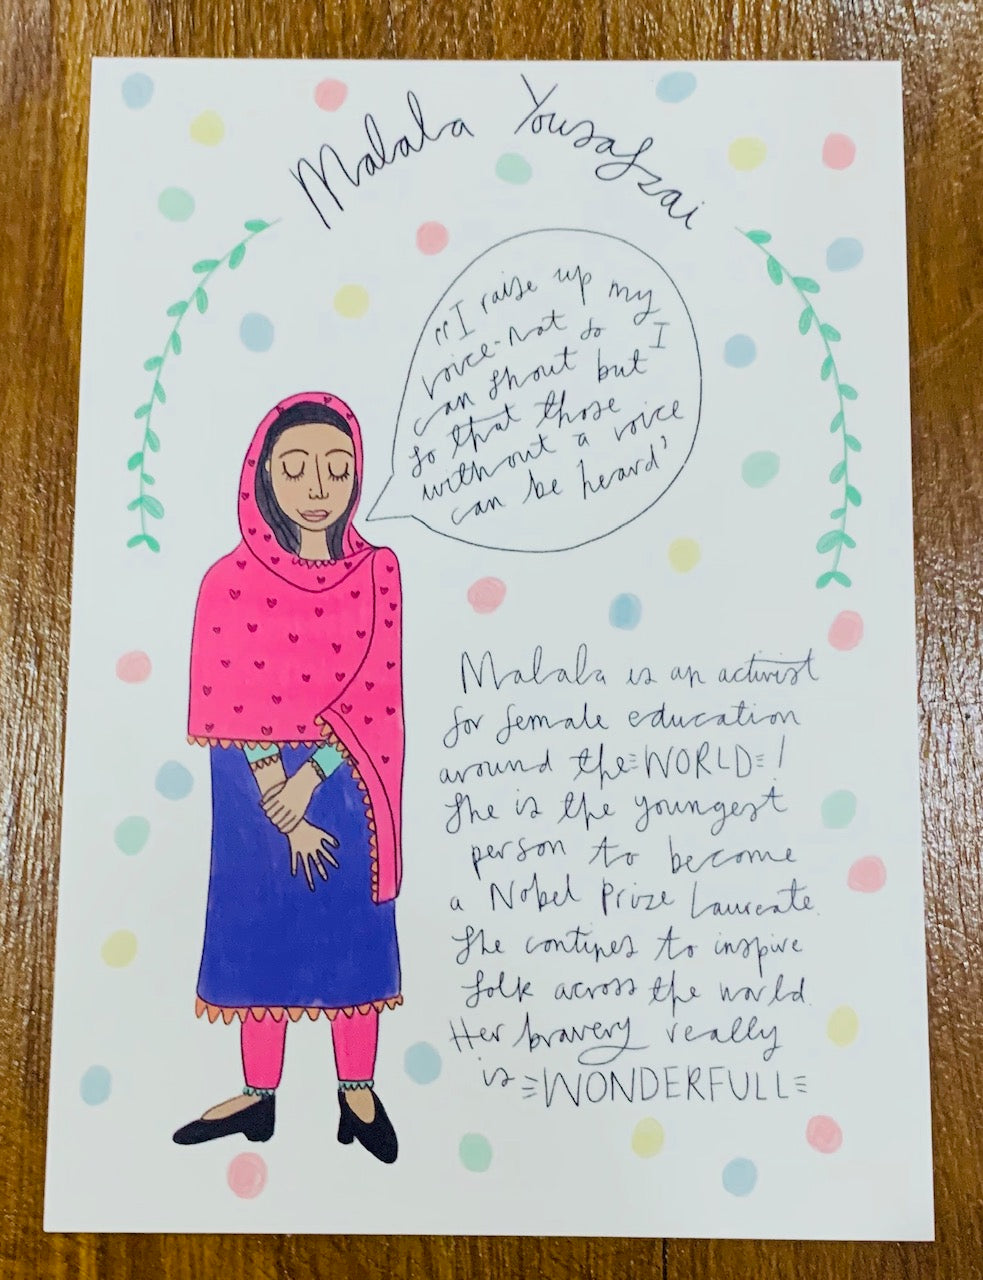 Malala Yousafzai
"I raise up my
voice-not so I
can shout but
so that those
without a voice
can be heard'
Malala is an activist
for female education
around the WORLD !
She is the youngest
person to become
a Nobel Prize Laureate.
She contines to inspire
folk across the world.
Her bravery really
is WONDERFULL